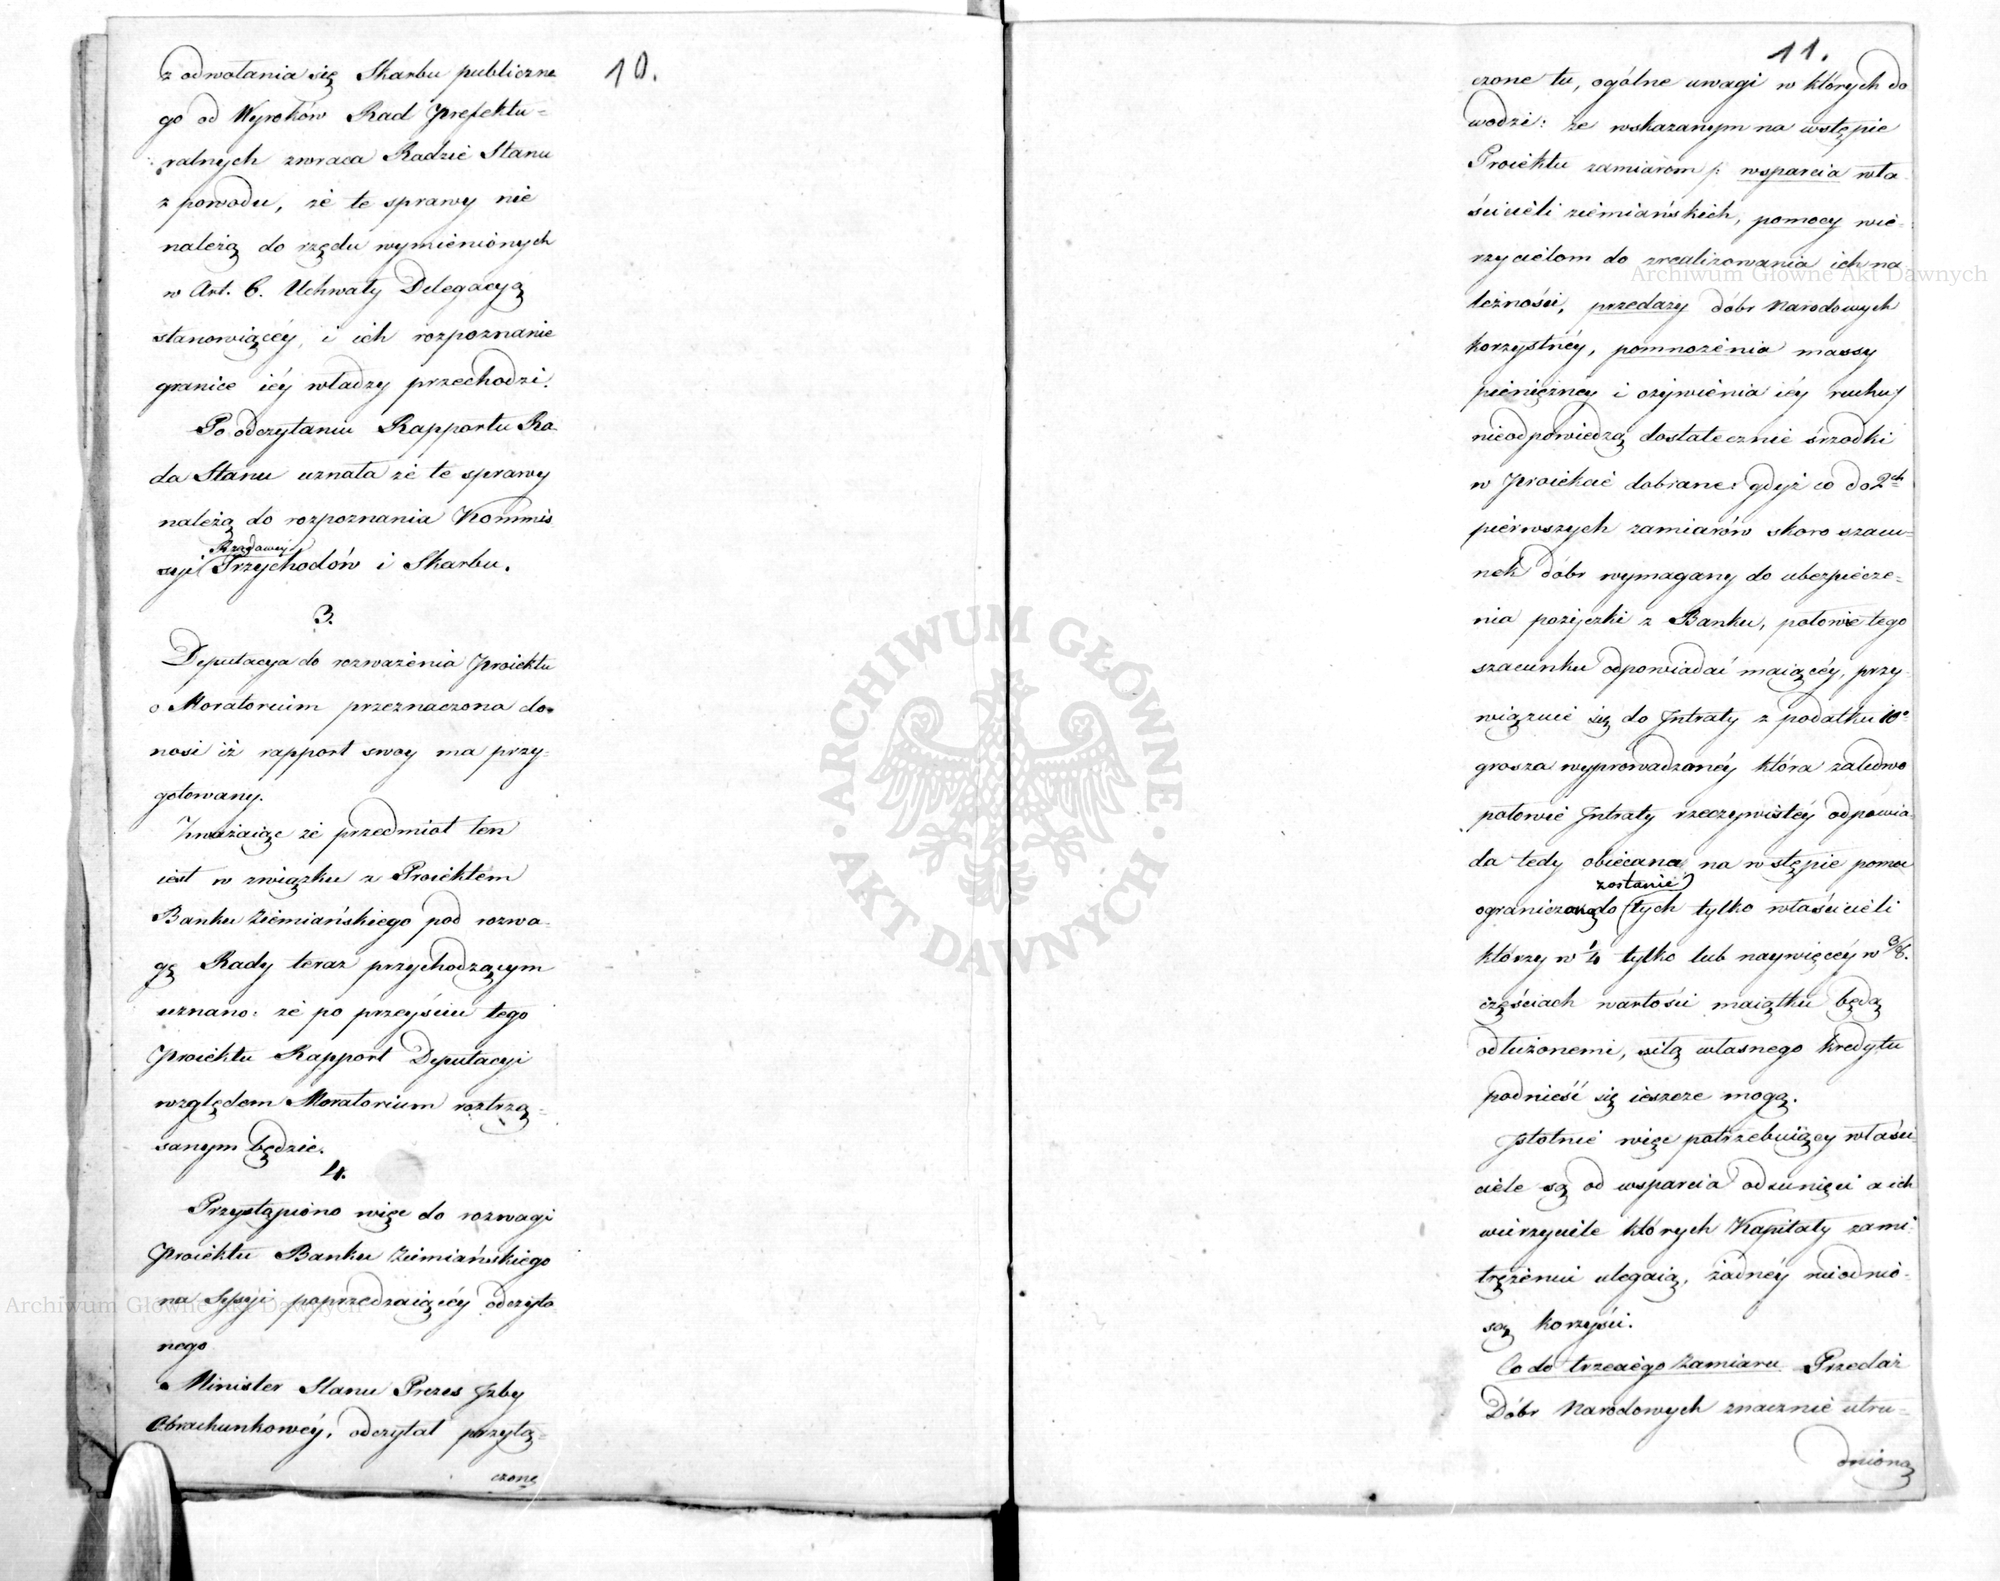 10.
z odwołania się Skarbu publiczne
go od Wyroków Rad Prefektu-
ralnych zwraca Radzie Stanu
z powodu, że te sprawy nie
należą do rzędu wymienionych
w Art. 6. Uchwały Delegacyą
stanowiącéy, i ich rozpoznanie
granice iéy władzy przechodzi.
Po odczytaniu Rapportu Ra-
da Stanu uznała że te sprawy
należą do rozpoznania Kommis
syi Rządowey Przychodów i Skarbu.
3.
Deputacya do rozważenia Proiektu
o Moratorium przeznaczona do-
nosi iż rapport swoy ma przy-
gotowany.
Zważaiąc że przedmiot ten
iest w związku z Proiektem
Banku Ziemiańskiego pod rozwa-
gę Rady teraz przychodzącym
uznano: że po przeyściu tego
Proiektu Rapport Deputacyi
względem Moratorium roztrzą-
sanym będzie.
4.
Przystąpiono więc do rozwagi
Proiektu Banku Ziemiańskiego
na Sessyi poprzedzaiącéy odczyta
nego
Minister Stanu Prezes Izby
Obrachunkowéy, odczytał przyłą-
czone
11.
czone tu, ogólne uwagi w których do
wodzi: że wskazanym na wstępie
Proiektu zamiarom /: wsparcia wła-
ścicieli ziemiańskich, pomocy wie-
rzycielom do zrealizowania ich na
leżności, przedaży dóbr Narodowych
korzystnéy, pomnożenia massy
pieniężnéy i ożywienia iéy ruchu/
nieodpowiedzą dostatecznie śrzodki
w Proiekcie dobrane: gdyż co do 2ch
pierwszych zamiarów skoro szacu-
nek dóbr wymagany do ubezpiecze-
nia pożyczki z Banku, połowie tego
szacunku odpowiadać maiącéy, przy-
wiązuie się do Intraty z podatku 10o
grosza wyprowadzanéy która zaledwo
połowie Intraty rzeczywistéy odpowia-
da tedy obiecana na wstępie pomoc
ograniczoną zostanie do tych tylko właścicieli
którzy w 1/4 tylko lub naywięcéy w 3/8.
częściach wartości maiątku będą
odłużonemi, siłą własnego kredytu
podnieść się ieszcze mogą.
Istotnie więc potrzebuiący właści
ciele są od wsparcia odsunięci a ich
wierzyciele których Kapitały zami-
trężeniu ulegaią, żadnéy nieodnio-
są korzyści.
Co do trzeciégo zamiaru Przedaż
Dóbr Narodowych znacznie utru-
dnioną
Archiwum Główne Akt Dawnych
Archiwum Główne Akt Dawnych
ARCHIWUM GŁÓWNE
AKT DAWNYCH